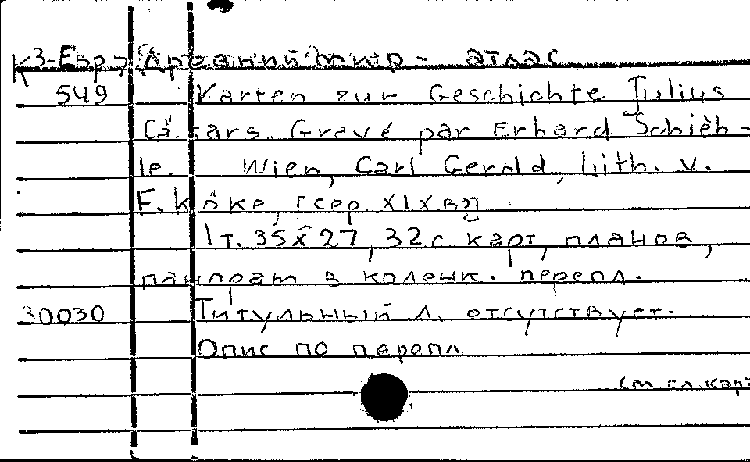 К3-Евр. Древний мир - атлас
549 Karten zur Geschichte Julius
Cäsars. Gravé par Erhard Schieb-
le. Wien, Carl Gerold, Lith. v.
F. Köke, [сер. XIX в.]
1 т. 35x27, 32 с. карт, планов,
панорам в коленк. перепл.
30030 Титульный л. отсутствует.
Опис. по перепл.
См. сл. карт